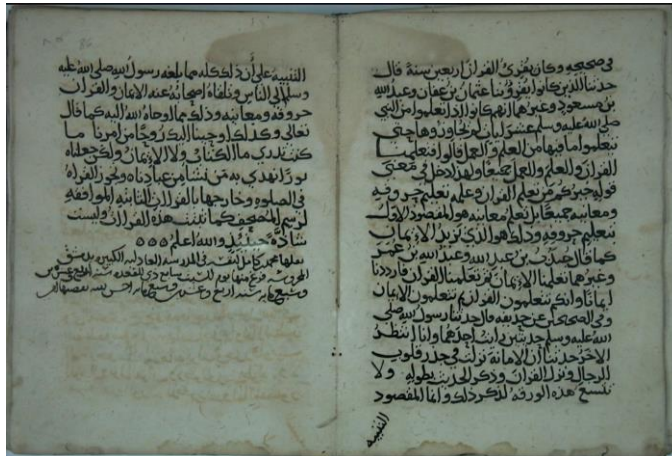 في صحيحه وكان يقرئ القران اربعين سنة قال
حدثنا الذين كانوا يقرؤننا عثمان بن عفان وعبد الله
بن مسعود وغيرهما انهم كانوا اذا تعلموا من النبي
صلى الله عليه وسلم عشر ايات لم يجاوزوها حتى
يتعلموا ما فيها من العلم والعمل قالوا فتعلمنا
القران والعلم والعمل جميعا ولهذا دخل في معنى
قوله خيركم من تعلم القران وعلمه تعليم حروفه
ومعانيه جميعا بل تعلم معانيه هو المقصود الاول
بتعليم حروفه وذلك هو الذي يزيد الايمان
كما قال جندب بن عبد الله وعبد الله بن عمر
وغيرهما تعلمنا الايمان ثم تعلمنا القران فازددنا
ايمانا وانكم تتعلمون القران ثم تتعلمون الايمان
وفي الصحيحين عن حذيفه قال حدثنا رسول الله صلى
الله عليه وسلم حديثين رايت احدهما وانا انتظر
الاخر حدثنا ان الامانة نزلت في جذر قلوب
الرجال ونزل القران وذكر الحديث بطوله ولا
تتسع هذه الورقه لذكر ذلك وانما المقصود
التنبيه
التنبيه على ان ذلك كله مما بلغه رسول الله صلى الله عليه
وسلم الى الناس وتلقاه اصحابه عنه الايمان والقران
حروفه ومعانيه وذلك مما اوحاه الله اليه كما قال
تعالى وكذلك اوحينا اليك روحا من امرنا ما
كنت تدري ما الكتاب ولا الايمان ولكن جعلناه
نورا نهدي به من نشا من عبادنا وتجوز القراه
في الصلوه وخارجها بالقراات الثابته الموافقه
لرسم المصحف كما ثبتت هذه القراات وليست
شاذة حينئذ والله اعلم